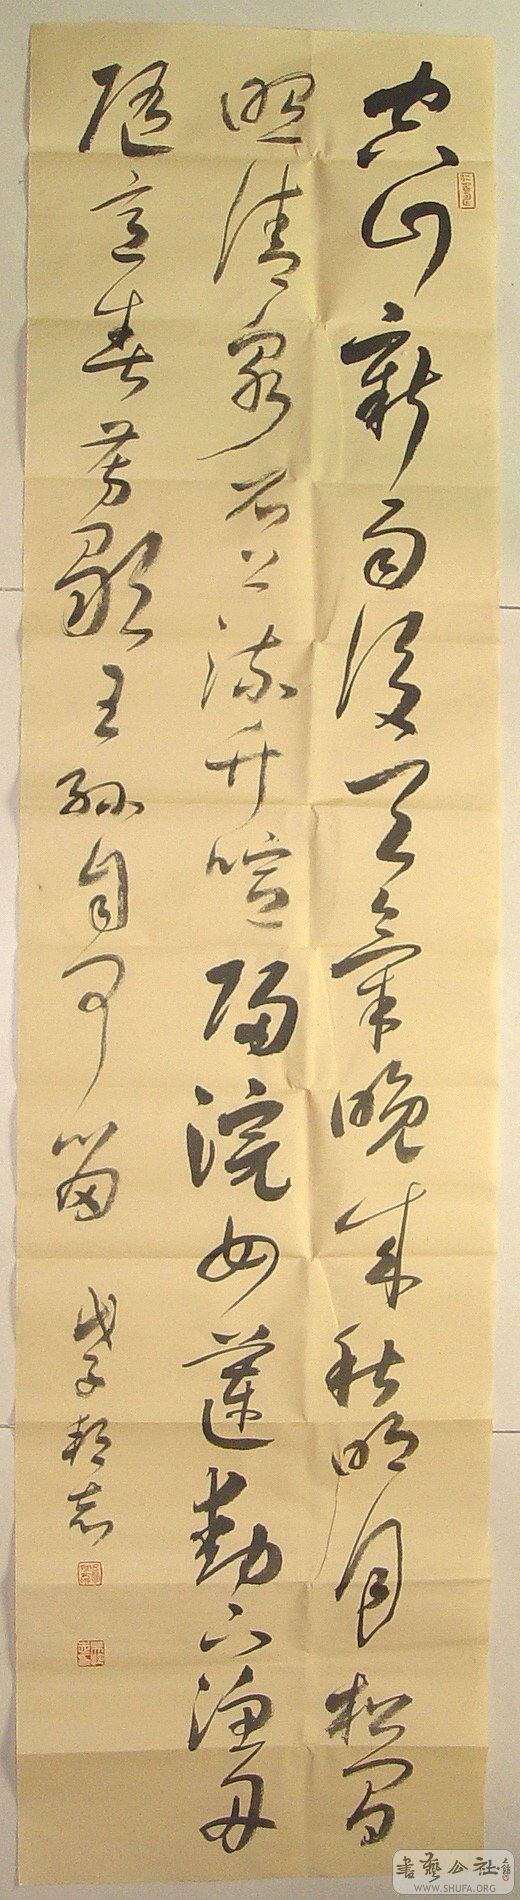 空山新雨後天氣晚来秋明月松間
照清泉石上流竹喧歸浣女蓮動下漁舟
隨意春芳歇王孫自可留
戊子
書藝公社
WWW.SHUFA.ORG